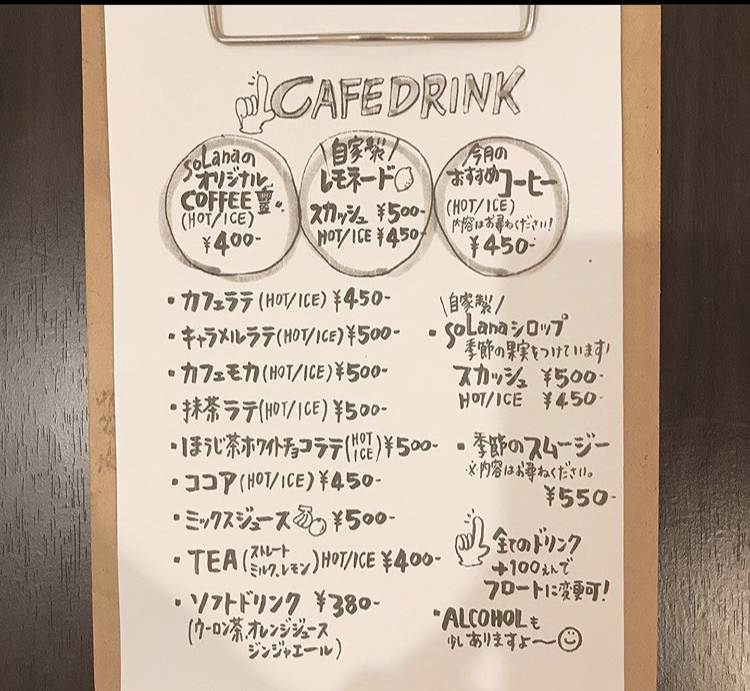 CAFEDRINK
soLanaの
オリジナル
COFFEE
(HOT/ICE)
¥400-
\自家製/
レモネード
スカッシュ ¥500-
HOT/ICE ¥450-
今月の
おすすめコーヒー
(HOT/ICE)
内容はお尋ねください!
¥450-
・カフェラテ(HOT/ICE)¥450-
・キャラメルラテ(HOT/ICE)¥500-
・カフェモカ(HOT/ICE)¥500-
・抹茶ラテ(HOT/ICE)¥500-
・ほうじ茶ホワイトチョコラテ(HOT ICE)¥500-
・ココア(HOT/ICE)¥450-
・ミックスジュース ¥500-
・TEA(ストレート ミルク、レモン)HOT/ICE ¥400-
・ソフトドリンク ¥380-
(ウーロン茶、オレンジジュース
ジンジャエール)
\自家製/
・soLanaシロップ
季節の果実をつけています!
スカッシュ ¥500-
HOT/ICE ¥450-
・季節のスムージー
※内容はお尋ねください。
¥550-
全てのドリンク
+100えんで
フロートに変更可!
・ALCOHOLも
少しありますよ〜